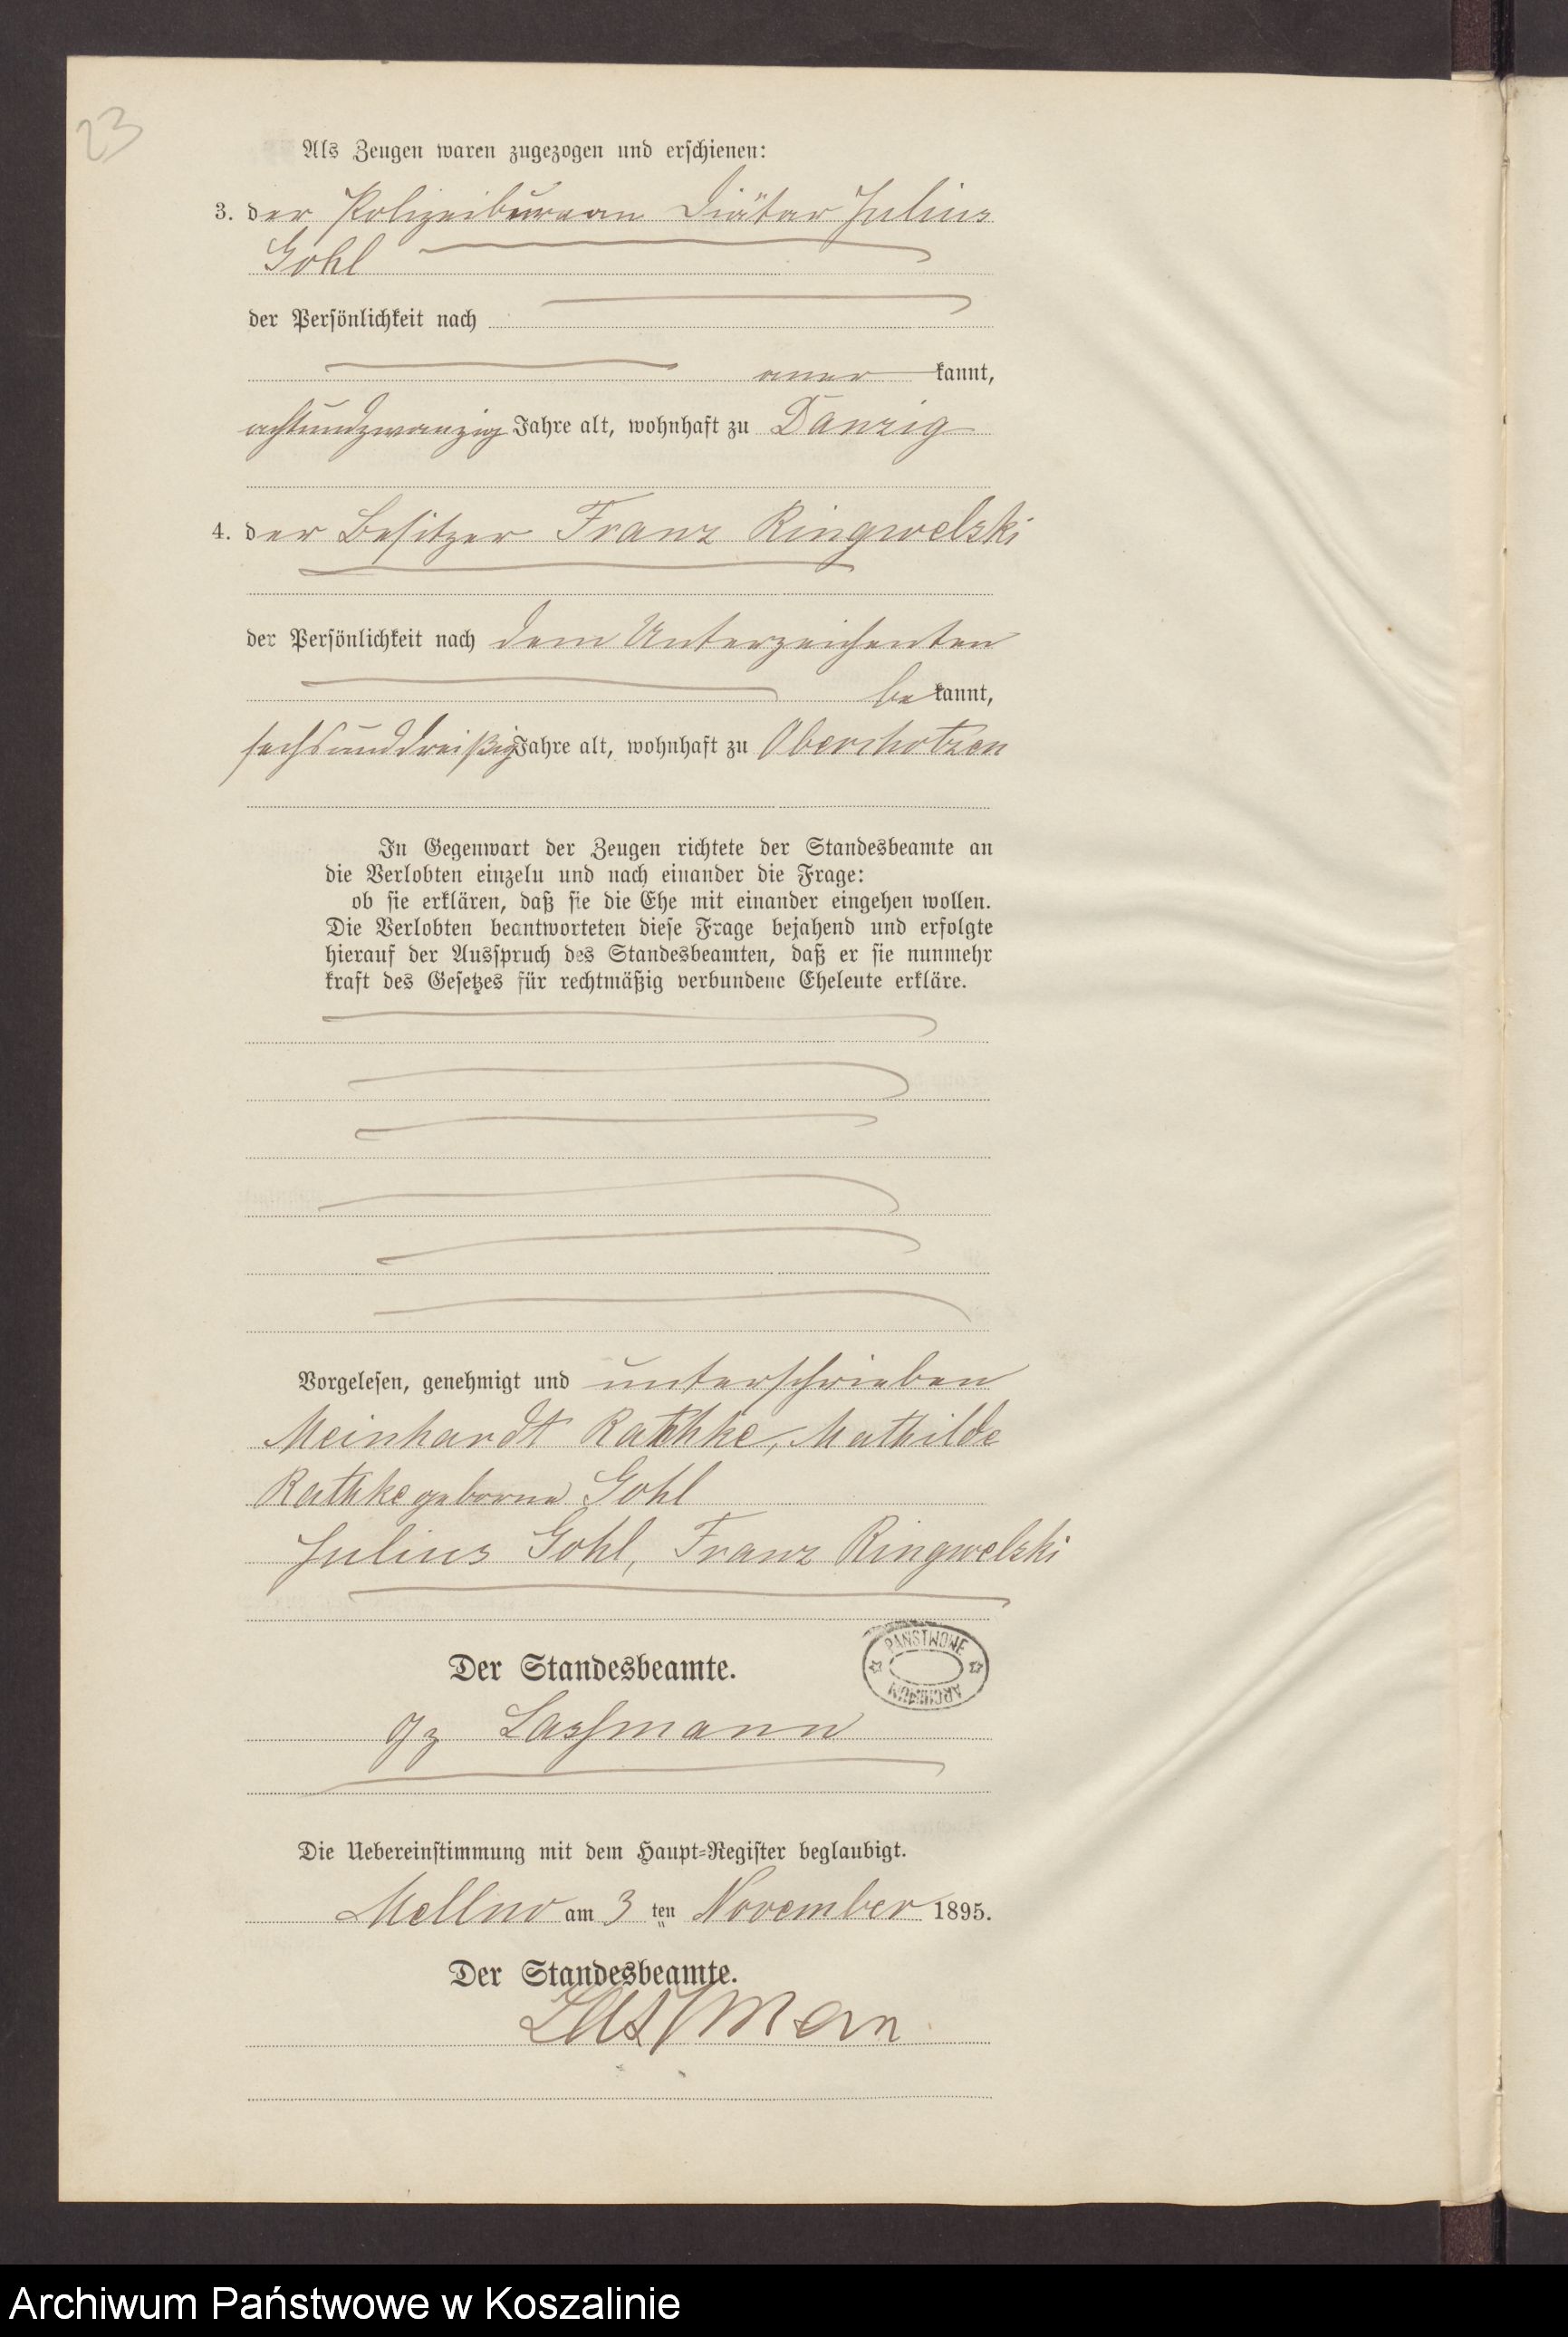 23
Als Zeugen waren zugezogen und erschienen:
3. der Polizeibureau Diätar Julius
Gohl
der Persönlichkeit nach
aner kannt,
achtundzwanzig Jahre alt, wohnhaft zu Danzig
4. der Besitzer Franz Ringwelski
der Persönlichkeit nach dem Unterzeichenten
be kannt,
sechsunddreißig Jahre alt, wohnhaft zu Oberschotzen
In Gegenwart der Zeugen richtete der Standesbeamte an
die Verlobten einzeln und nach einander die Frage:
ob sie erklären, daß sie die Ehe mit einander eingehen wollen.
Die Verlobten beantworteten diese Frage bejahend und erfolgte
hierauf der Ausspruch des Standesbeamten, daß er sie nunmehr
kraft des Gesetzes für rechtmäßig verbundene Eheleute erkläre.
Vorgelesen, genehmigt und unterschrieben
Meinhardt Rathke, Mathilde
Rathke geborne Gohl
Julius Gohl, Franz Ringwelski
PAŃSTWOWE ARCHIWUM
Der Standesbeamte.
gz Lassmann
Die Uebereinstimmung mit dem Haupt-Register beglaubigt.
Mellno am 3 ten November 1895.
Der Standesbeamte.
Lassman
Archiwum Państwowe w Koszalinie